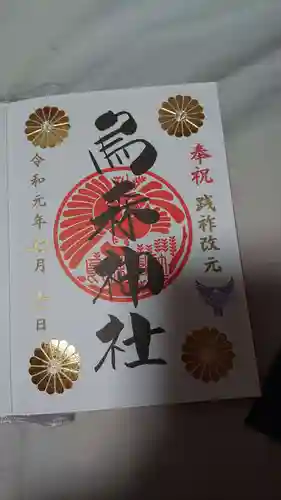 奉祝 践祚改元
烏森神社
令和元年七月 日